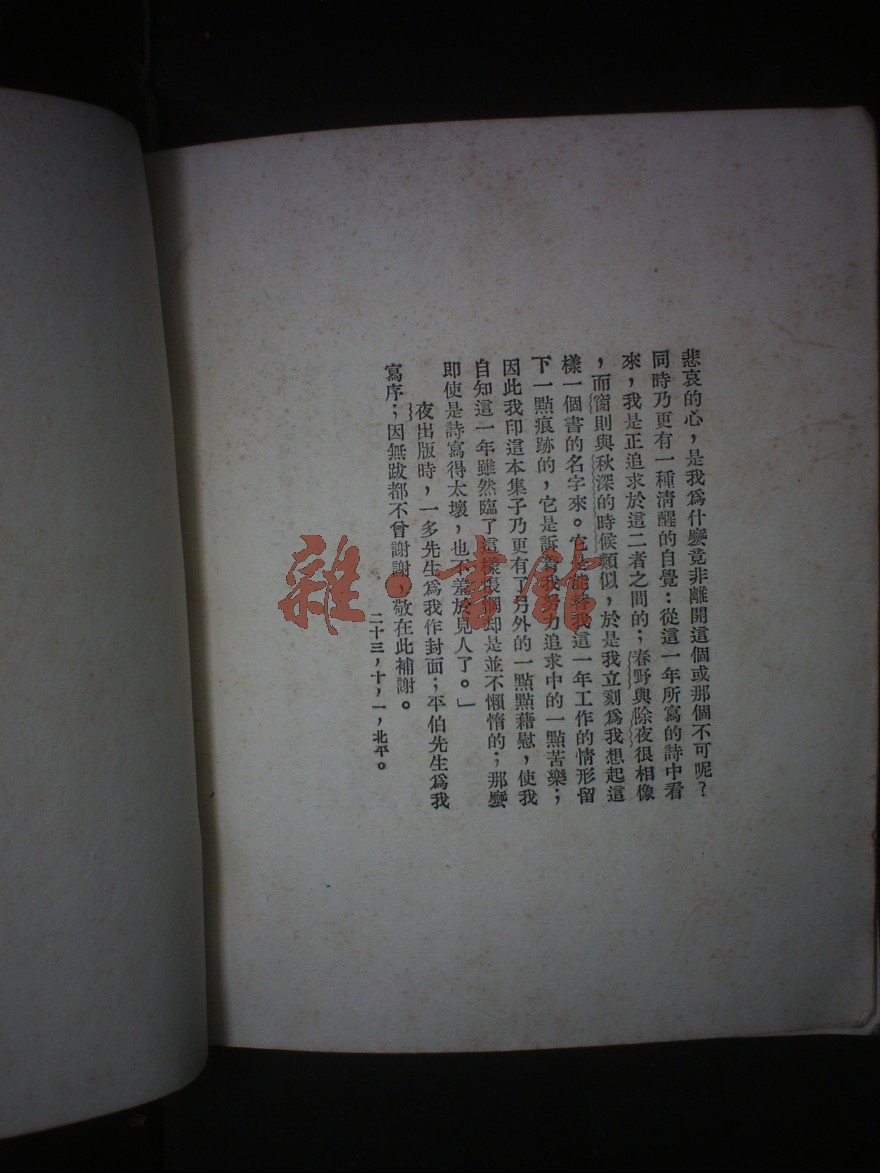 悲哀的心，是我爲什麽竟非離開這個或那個不可呢？
同時乃更有一種清醒的自覺：從這一年所寫的詩中看
來，我是正追求於這二者之間的；春野與除夜很相像
，而窗則與秋深的時候類似，於是我立刻爲我想起這
樣一個書的名字來。它是能替我這一年工作的情形留
下一點痕跡的，它是訴着我努力追求中的一點苦樂；
因此我印這本集子乃更有了另外的一點點藉慰，使我
自知這一年雖然臨了這樣長個却是並不懶惰的；那麽
即使是詩寫得太壞，也不羞於見人了。」
夜出版時，一多先生爲我作封面；平伯先生爲我
寫序；因無跋都不曾謝謝，敬在此補謝。
二十三，十，一，北平。
雜·書館